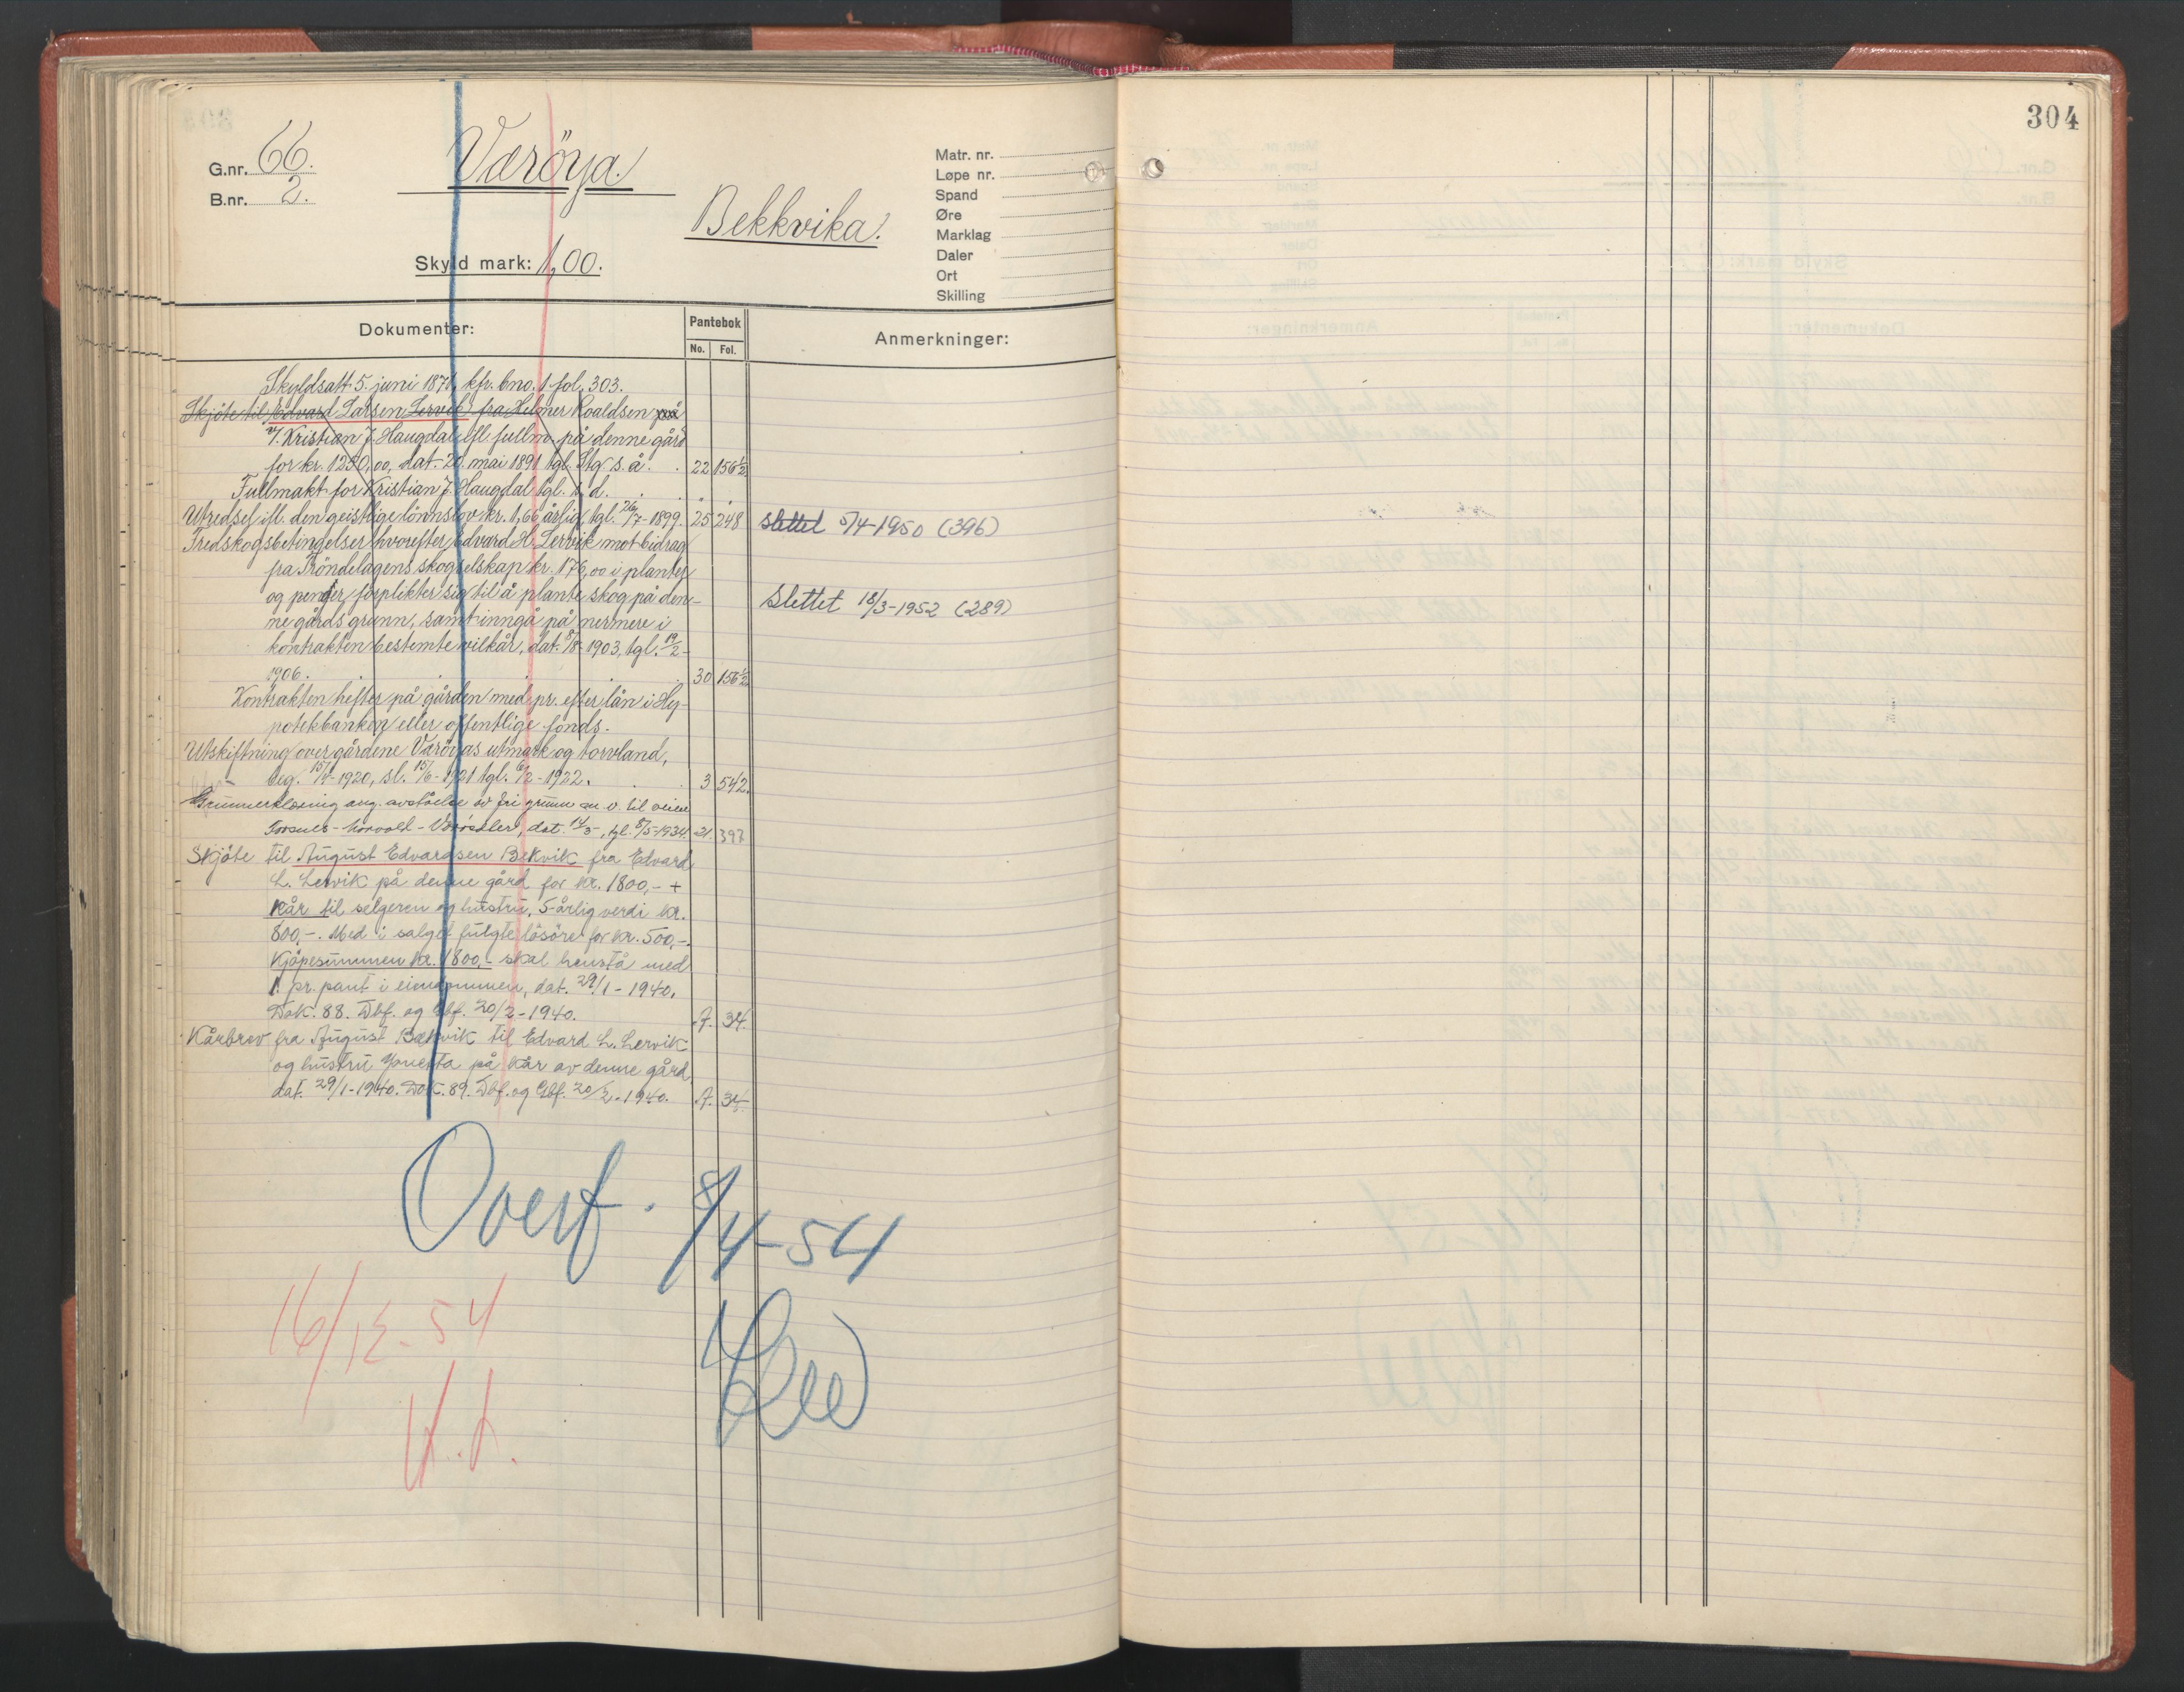 304
G.nr. 66.
B.nr. 2.
Værøya.
Bekkvika.
Skyld mark: 1,00.
Matr. nr.
Løpe nr.
Spand
Øre
Marklag
Daler
Ort
Skilling
Dokumenter:
Pantebok
No. Fol.
Anmerkninger:
Skyldsatt 5. juni 1871, kfr. bno. 1 fol. 303.
Skjöte til Edvard Larsen Lervik fra Helmer Roaldsen på
v/. Kristian J. Haugdal ifl. fullm. på denne gård
for kr. 1250,00, dat. 20. mai 1891 tgl. s. å. 22 156½
Fullmakt for Kristian J. Haugdal tgl. s. d.
Utredsel ifl. den geistlige lönnslov kr. 1,66 årlig, tgl. 26/7-1899. 25 248 slettet 5/4-1950 (396)
Fredskogsbetingelser hvorefter Edvard H. Lervik mot bidrag
fra Tröndelagens skogselskap kr. 176,00 i planter
og penger, forplikter sig til å plante skog på den- slettet 18/3-1952 (289)
ne gårds grunn, samt inngå på nermere i
kontrakten bestemte vilkår, dat. 8/8-1903, tgl. 19/2-
1906. 30 156½
Kontrakten hefter på gården med pr. efter lån i Hy-
potekbanken eller offentlige fonds.
Utskiftning over gårdene Væröyas utmark og torvland,
beg. 15/7-1920, sl. 15/6-1921 tgl. 6/2-1922. 3 542.
Grunnerklæring ang. avståelse av fri grunn m. v. til veien
dat. 14/3-, tgl. 8/5-1934. 21. 397
Skjöte til August Edvardsen Bekvik fra Edvard
L. Lervik på denne gård for kr. 1800,- +
kår til selgeren og hustru, 5-årlig verdi kr.
800,-. Med i salget fulgte lösöre for kr. 500,-.
Kjöpesummen kr. 1800,- skal henstå med
1. pr. pant i eiendommen, dat. 29/1-1940.
Dok. 88. Dbf. og Gbf. 20/2-1940. A. 34.
Kårbrev fra August Bekvik til Edvard L. Lervik
og hustru på kår av denne gård
dat. 29/1-1940. Dok. 89. Dbf. og Gbf. 20/2-1940. A. 34.
Overf. 8/4-54
16/12-54